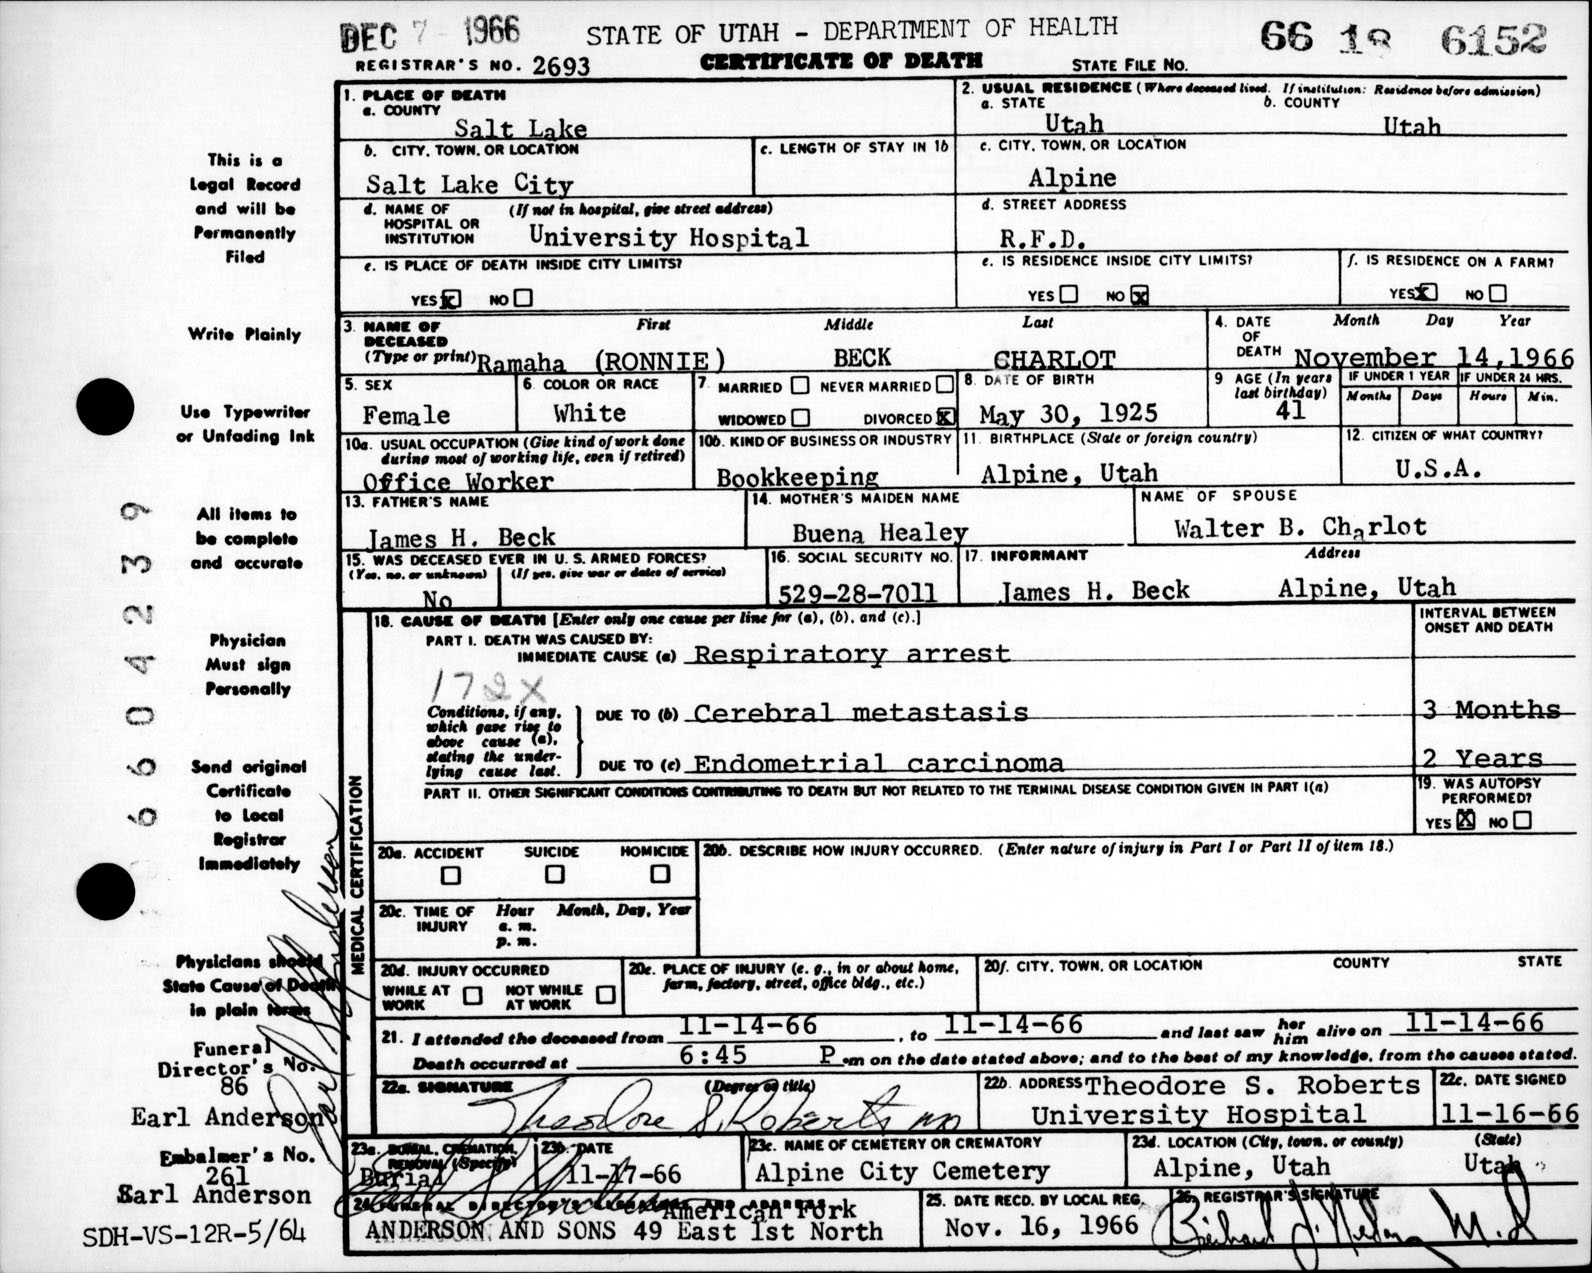 DEC 7 - 1966 STATE OF UTAH - DEPARTMENT OF HEALTH 66 18 6152
REGISTRAR'S NO. 2693 CERTIFICATE OF DEATH STATE FILE NO.
1. PLACE OF DEATH
a. COUNTY
Salt Lake
2. USUAL RESIDENCE (Where deceased lived. If institution: Residence before admission)
a. STATE b. COUNTY
Utah Utah
b. CITY, TOWN, OR LOCATION
Salt Lake City
c. LENGTH OF STAY IN 1b
c. CITY, TOWN, OR LOCATION
Alpine
d. NAME OF (If not in hospital, give street address)
HOSPITAL OR
INSTITUTION University Hospital
d. STREET ADDRESS
R.F.D.
e. IS PLACE OF DEATH INSIDE CITY LIMITS?
YES X NO
e. IS RESIDENCE INSIDE CITY LIMITS?
YES NO X
f. IS RESIDENCE ON A FARM?
YES X NO
3. NAME OF First Middle Last
DECEASED
(Type or print) Ramaha (RONNIE) BECK CHARLOT
4. DATE Month Day Year
OF
DEATH November 14, 1966
5. SEX
Female
6. COLOR OR RACE
White
7. MARRIED NEVER MARRIED
WIDOWED DIVORCED X
8. DATE OF BIRTH
May 30, 1925
9 AGE (In years
last birthday)
41
IF UNDER 1 YEAR IF UNDER 24 HRS.
Months Days Hours Min.
10a. USUAL OCCUPATION (Give kind of work done
during most of working life, even if retired)
Office Worker
10b. KIND OF BUSINESS OR INDUSTRY
Bookkeeping
11. BIRTHPLACE (State or foreign country)
Alpine, Utah
12. CITIZEN OF WHAT COUNTRY?
U.S.A.
13. FATHER'S NAME
James H. Beck
14. MOTHER'S MAIDEN NAME
Buena Healey
NAME OF SPOUSE
Walter B. Charlot
15. WAS DECEASED EVER IN U. S. ARMED FORCES?
(Yes, no, or unknown) (If yes, give war or dates of service)
No
16. SOCIAL SECURITY NO.
529-28-7011
17. INFORMANT Address
James H. Beck Alpine, Utah
18. CAUSE OF DEATH [Enter only one cause per line for (a), (b), and (c).]
INTERVAL BETWEEN
ONSET AND DEATH
PART I. DEATH WAS CAUSED BY:
IMMEDIATE CAUSE (a) Respiratory arrest
172X
Conditions, if any,
which gave rise to
above cause (a),
stating the under-
lying cause last.
DUE TO (b) Cerebral metastasis 3 Months
DUE TO (c) Endometrial carcinoma 2 Years
PART II. OTHER SIGNIFICANT CONDITIONS CONTRIBUTING TO DEATH BUT NOT RELATED TO THE TERMINAL DISEASE CONDITION GIVEN IN PART I(a)
19. WAS AUTOPSY
PERFORMED?
YES X NO
MEDICAL CERTIFICATION
20a. ACCIDENT SUICIDE HOMICIDE
20b. DESCRIBE HOW INJURY OCCURRED. (Enter nature of injury in Part I or Part II of item 18.)
20c. TIME OF Hour Month, Day, Year
INJURY a. m.
p. m.
20d. INJURY OCCURRED
WHILE AT NOT WHILE
WORK AT WORK
20e. PLACE OF INJURY (e. g., in or about home,
farm, factory, street, office bldg., etc.)
20f. CITY, TOWN, OR LOCATION COUNTY STATE
21. I attended the deceased from 11-14-66, to 11-14-66 and last saw her him alive on 11-14-66
Death occurred at 6:45 P.m on the date stated above; and to the best of my knowledge, from the causes stated.
22a. SIGNATURE (Degree or title)
Theodore S. Roberts MD
22b. ADDRESS Theodore S. Roberts
University Hospital
22c. DATE SIGNED
11-16-66
23a. BURIAL, CREMATION,
REMOVAL (Specify)
Burial
23b. DATE
11-17-66
23c. NAME OF CEMETERY OR CREMATORY
Alpine City Cemetery
23d. LOCATION (City, town, or county) (State)
Alpine, Utah Utah
24. FUNERAL DIRECTOR'S AND ADDRESS
American Fork
ANDERSON AND SONS 49 East 1st North
25. DATE RECD. BY LOCAL REG.
Nov. 16, 1966
26. REGISTRAR'S SIGNATURE
M.D
This is a
Legal Record
and will be
Permanently
Filed
Write Plainly
Use Typewriter
or Unfading Ink
All items to
be complete
and accurate
Physician
Must sign
Personally
Send original
Certificate
to Local
Registrar
Immediately
Physicians should
State Cause of Death
in plain terms
Funeral
Director's No.
86
Earl Anderson
Embalmer's No.
261
Earl Anderson
SDH-VS-12R-5/64
6604239